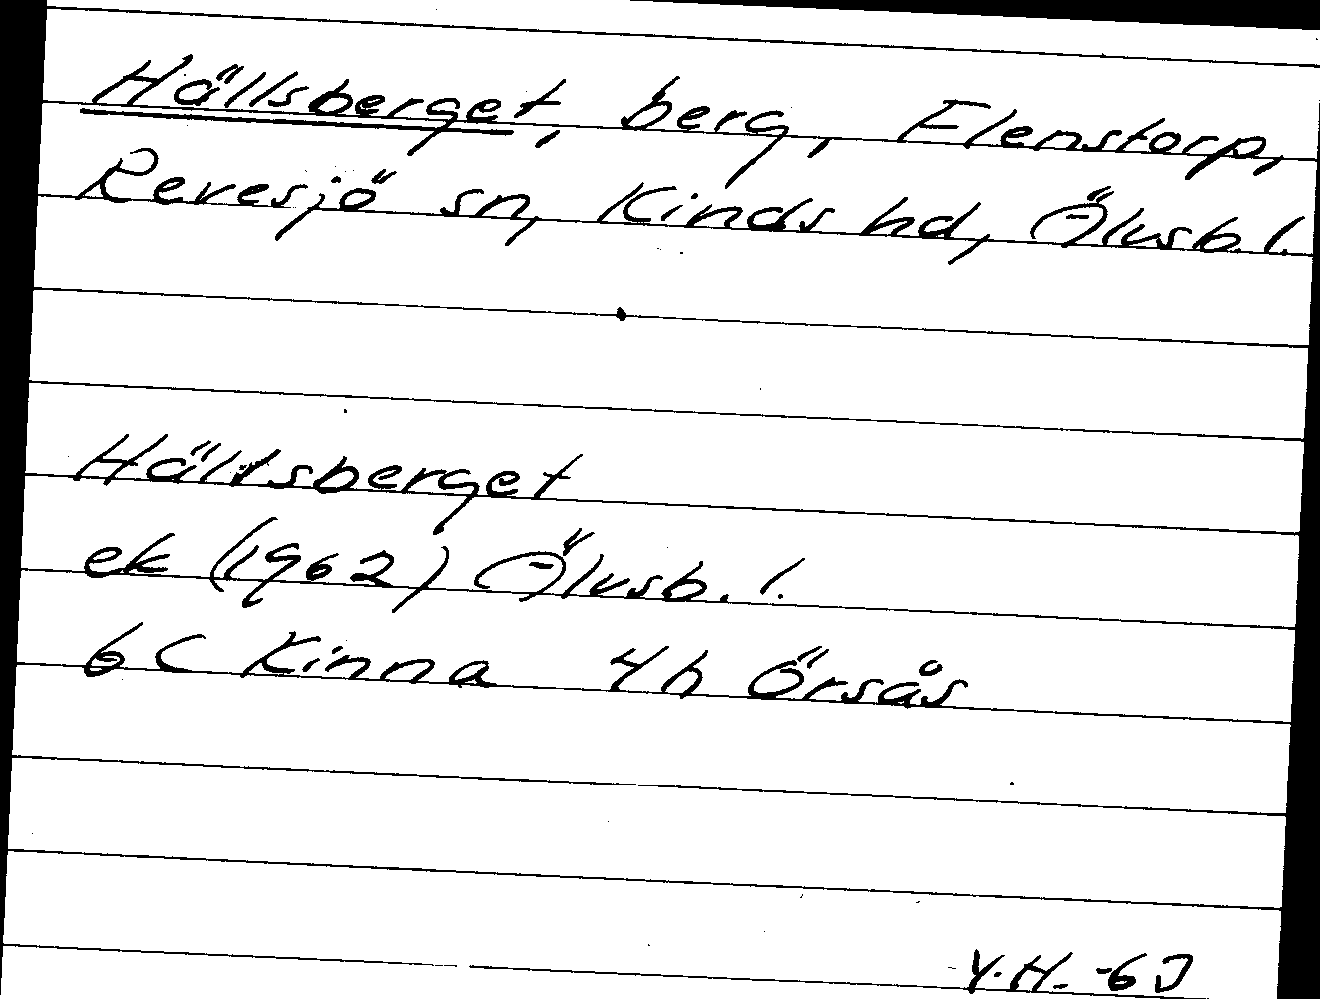 Hällsberget, berg, Elenstorp,
Revesjö sn, Kinds hd, Älvsb. l.
Hällsberget
ek (1962) Älvsb. l.
6 C Kinna 4 h Örsås
Y.H.